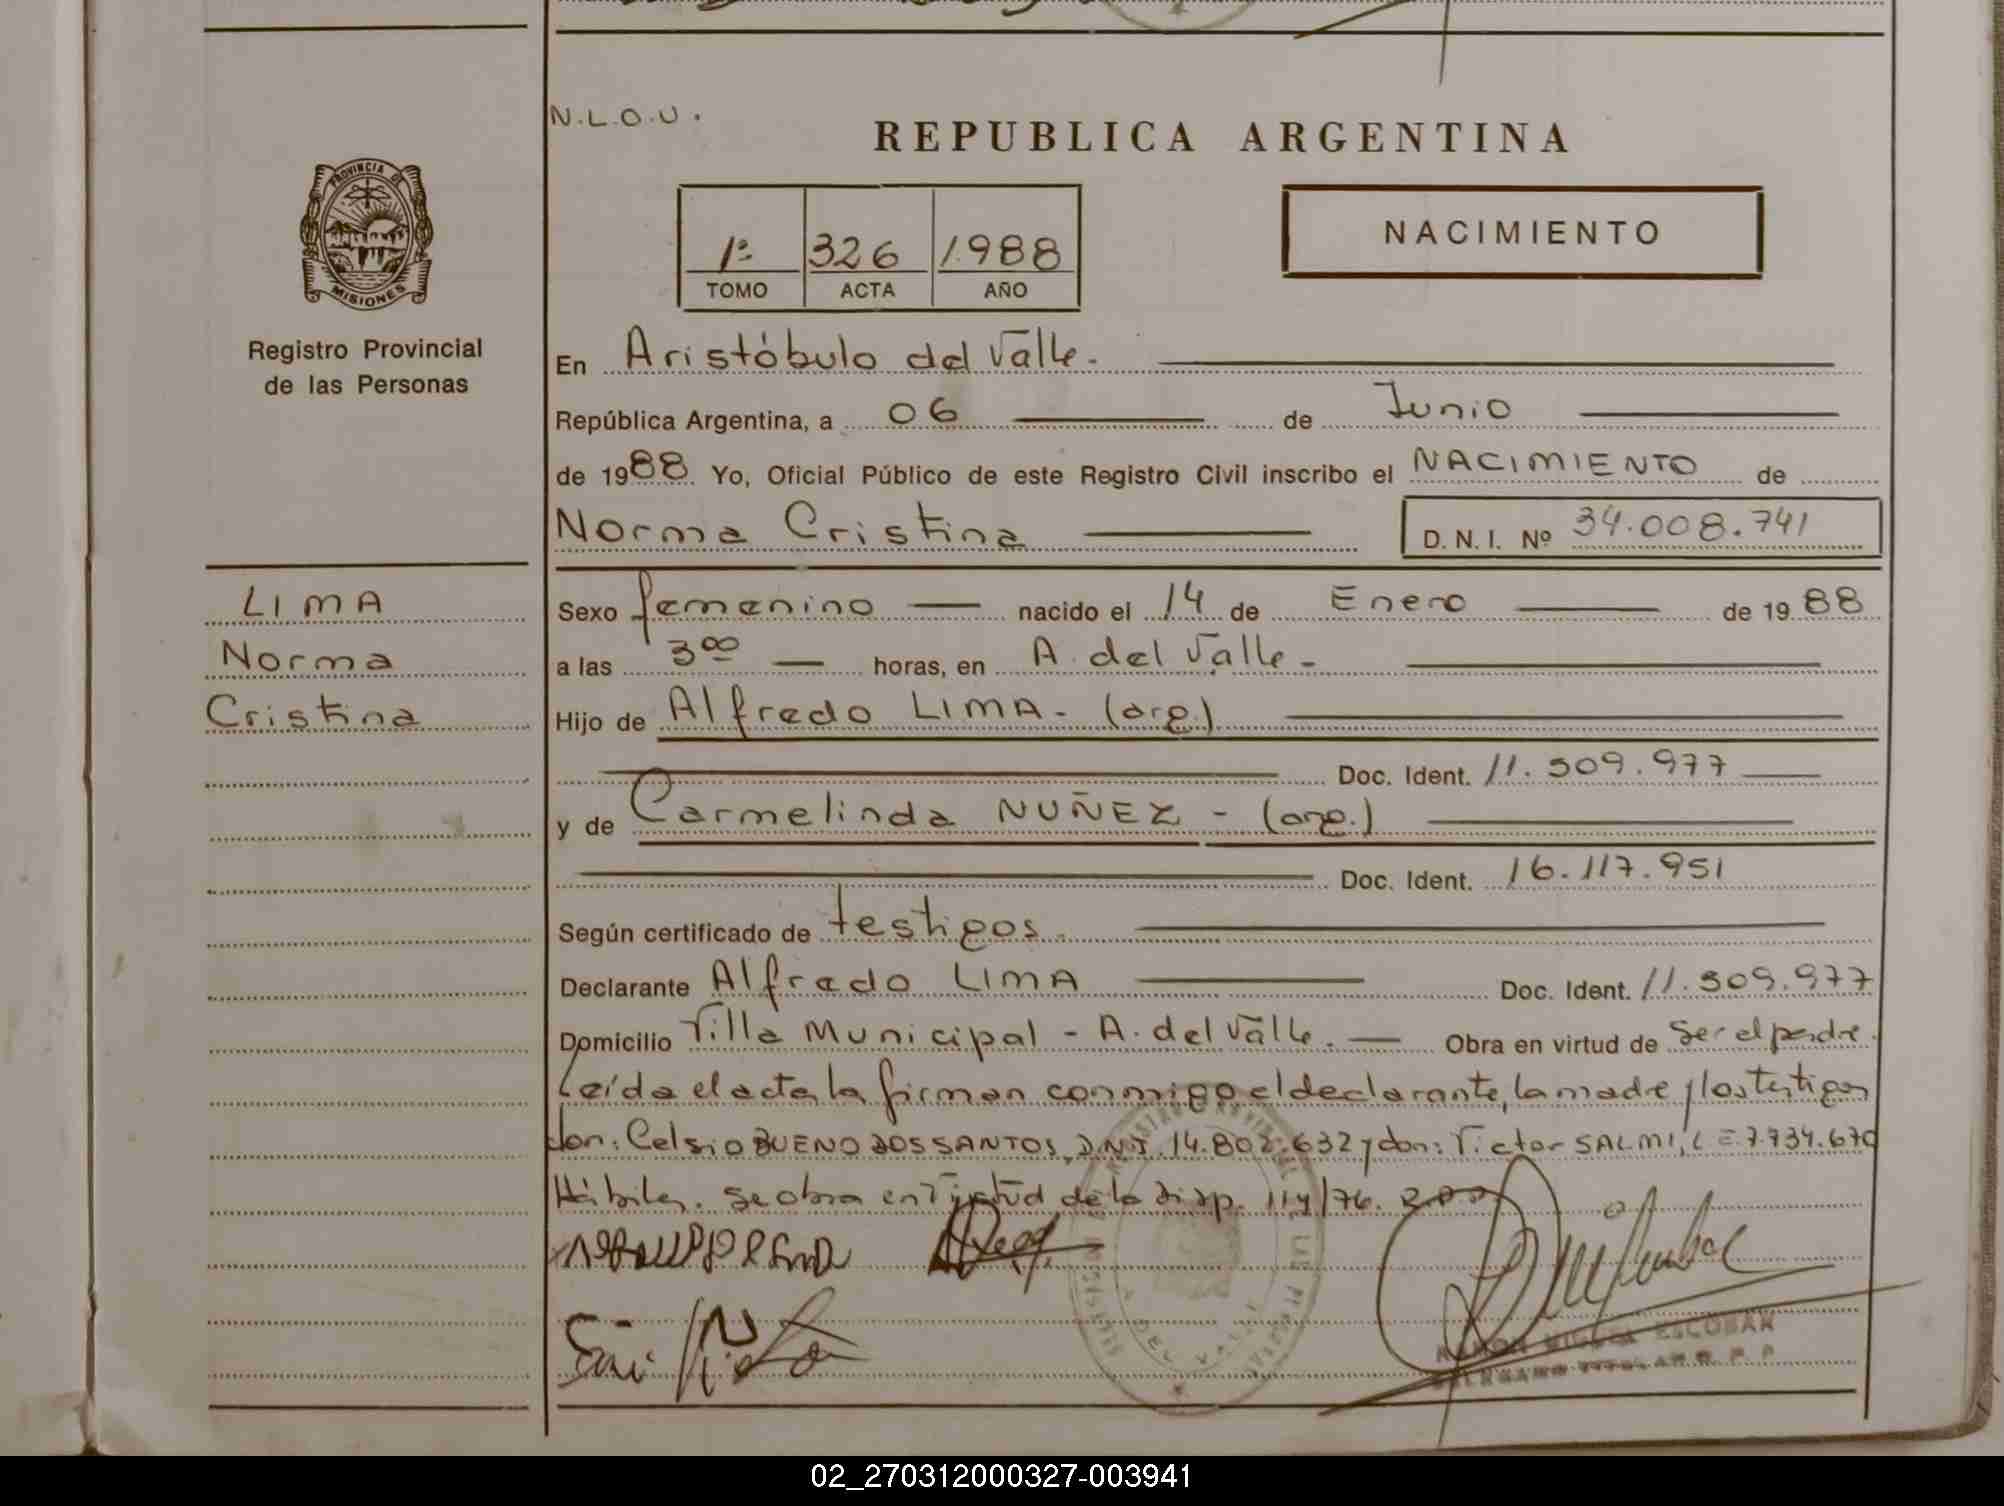 N.L.O.U.
REPUBLICA ARGENTINA
PROVINCIA DE
MISIONES
1º 326 1988
TOMO ACTA AÑO
NACIMIENTO
Registro Provincial
de las Personas
En Aristóbulo del Valle.-
República Argentina, a 06 de Junio
de 1988 Yo, Oficial Público de este Registro Civil inscribo el NACIMIENTO de
Norma Cristina D.N.I. Nº 34.008.741
LIMA
Norma
Cristina
Sexo femenino nacido el 14 de Enero de 1988
a las 3⁰⁰ horas, en A. del Valle -
Hijo de Alfredo LIMA - (arg.)
Doc. Ident. 11.509.977
y de Carmelinda NUÑEZ - (arg.)
Doc. Ident. 16.117.951
Según certificado de testigos.
Declarante Alfredo LIMA Doc. Ident. 11.509.977
Domicilio Villa Municipal - A. del Valle. Obra en virtud de ser el padre.
Leída el acta la firman conmigo el declarante, la madre y los testigos
don: Celsio BUENO DOS SANTOS, D.N.I. 14.802.632 y don: Victor SALMI, L.E. 7.734.670
Hábiles. Se obra en virtud de la Disp. 114/76.
RAMON MIGUEL ESCOBAR
DELEGADO TITULAR R. P. P.
A. DEL VALLE
02_270312000327-003941